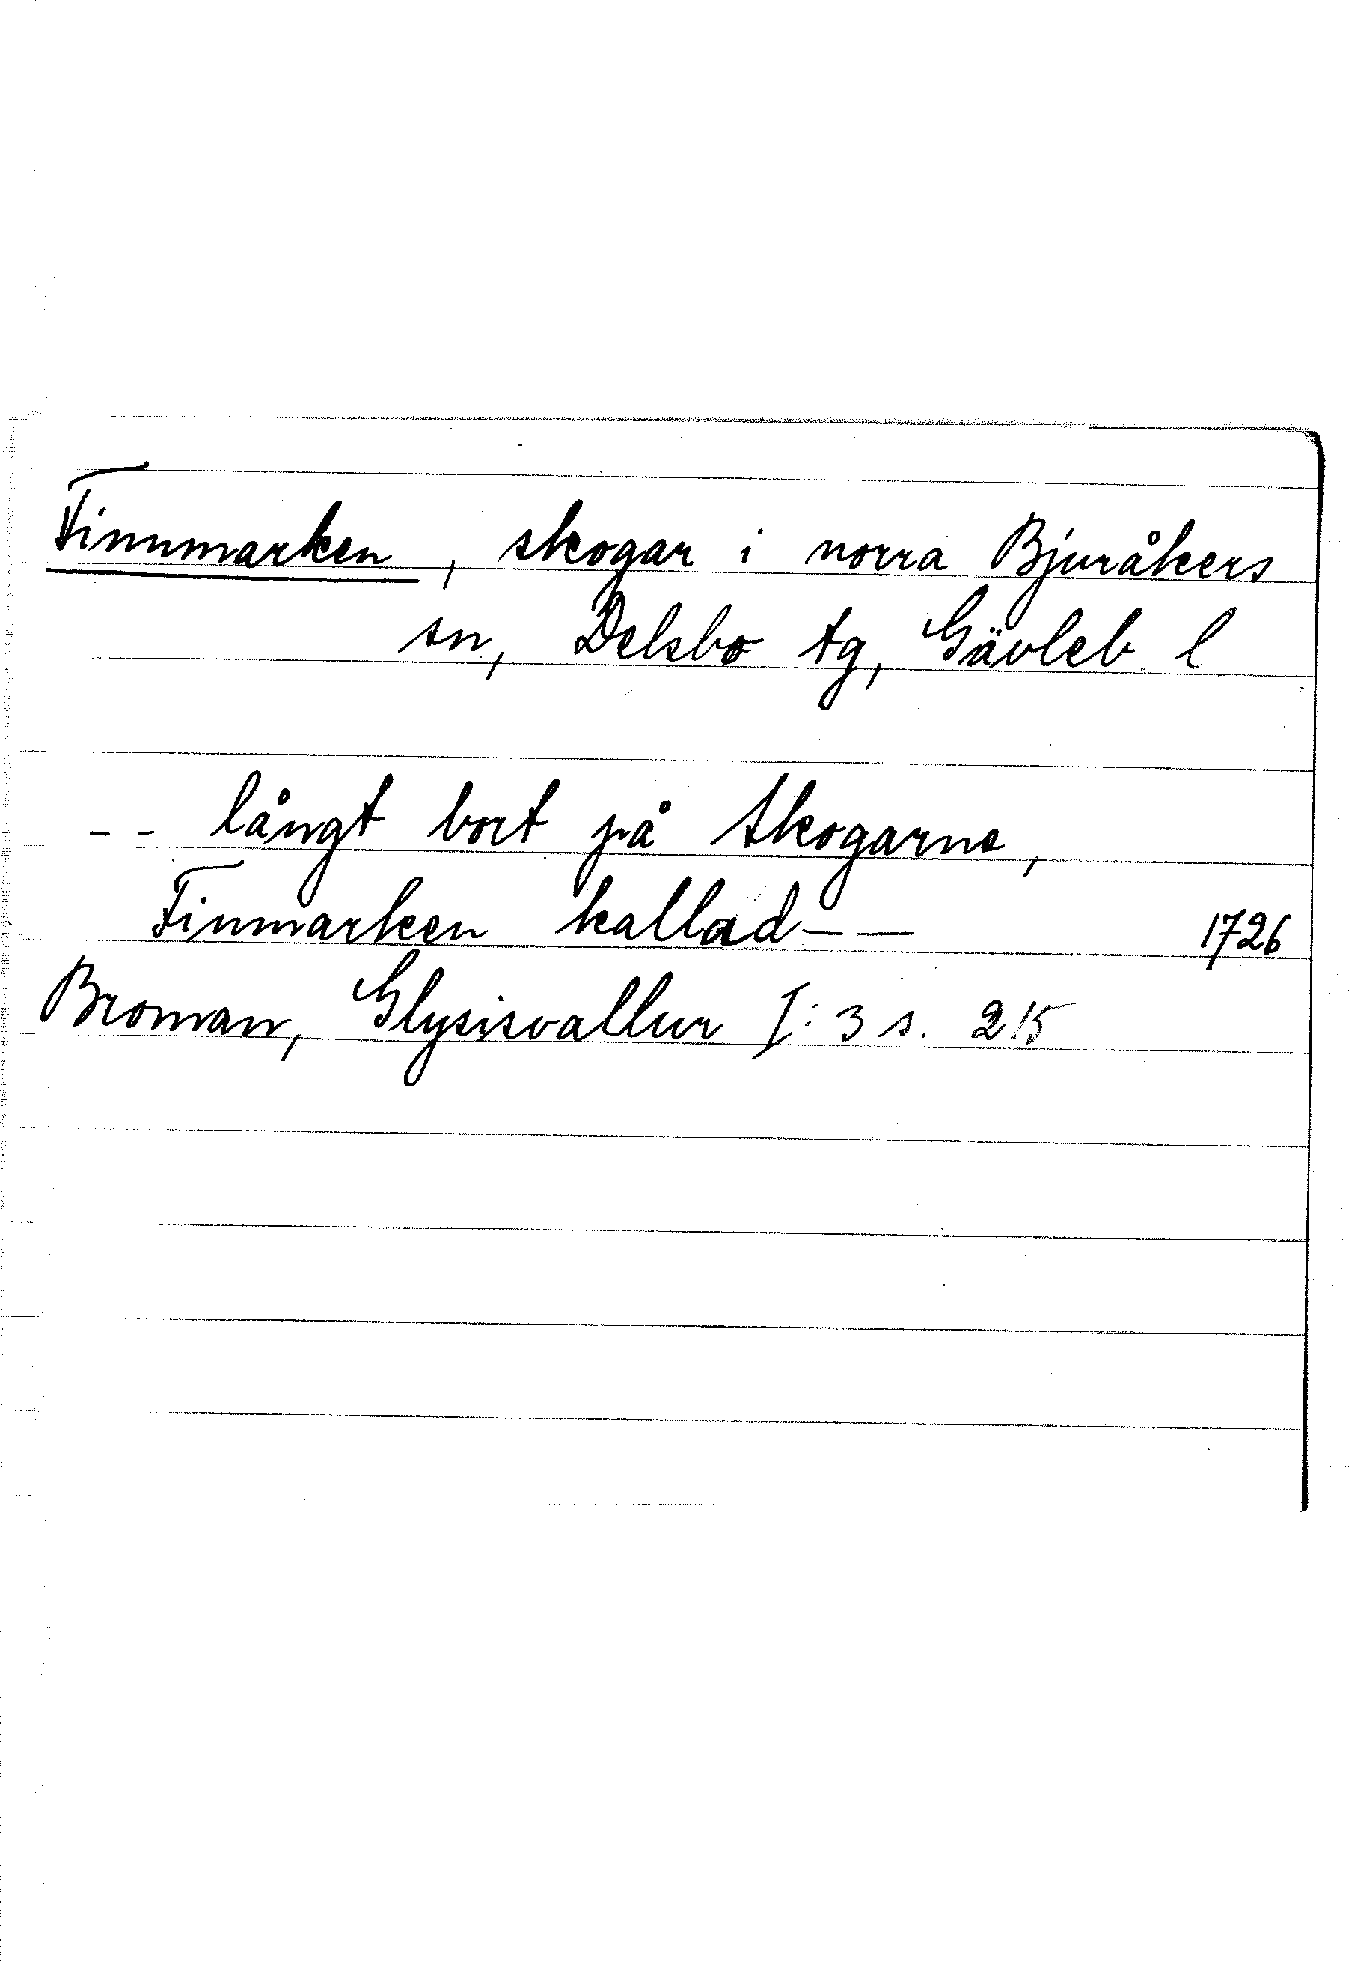 Finnmarken, skogar i norra Bjuråkers
sn, Delsbo tg, Gävleb. l
-- långt bort på Skogarne,
Finmarken kallad-- 1726
Broman, Glysisvallur I:3 s. 215